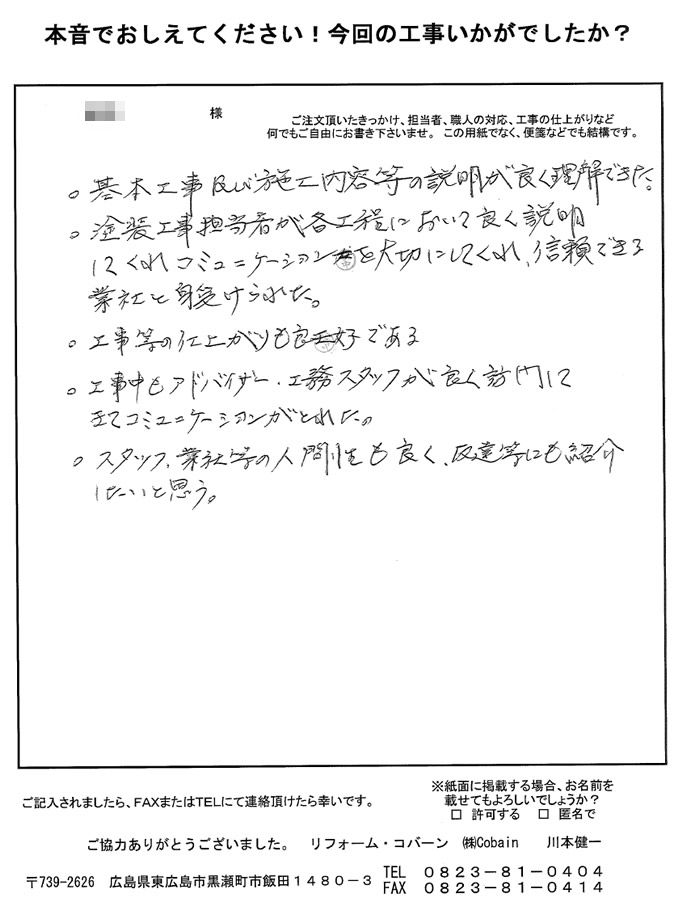 本音でおしえてください！今回の工事いかがでしたか？
様
ご注文頂いたきっかけ、担当者、職人の対応、工事の仕上がりなど
何でもご自由にお書き下さいませ。この用紙でなく、便箋などでも結構です。
○ 基本工事及び施工内容等の説明が良く理解できた。
○ 塗装工事担当者が各工程において良く説明
してくれコミュニケーションを大切にしてくれ、信頼できる
業社と見受けられた。
○ 工事等の仕上がりも良好である
○ 工事中もアドバイザー・工務スタッフが良く訪問して
きてコミュニケーションがとれた。
○ スタッフ、業社等の人間性も良く、友達等にも紹介
したいと思う。
ご記入されましたら、FAXまたはTELにて連絡頂けたら幸いです。
※紙面に掲載する場合、お名前を
載せてもよろしいでしょうか？
□ 許可する □ 匿名で
ご協力ありがとうございました。 リフォーム・コバーン ㈱Cobain 川本健一
〒739-2626 広島県東広島市黒瀬町市飯田１４８０－３
TEL ０８２３－８１－０４０４
FAX ０８２３－８１－０４１４